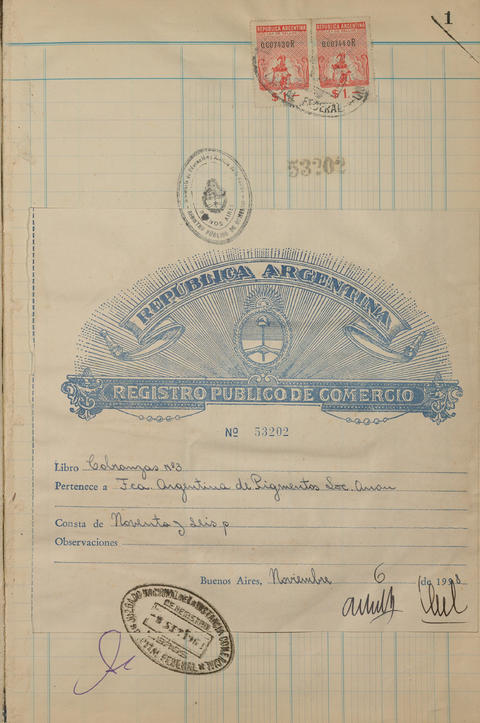 1
REPUBLICA ARGENTINA REPUBLICA ARGENTINA
0C07439R 0C07440R
$1. $1.
FEDERAL
53202
REPÚBLICA ARGENTINA
REGISTRO PUBLICO DE COMERCIO
Nº 53202
Libro Cobranzas nº3
Pertenece a Fca. Argentina de Pigmentos Soc. Anón
Consta de Noventa y seis p
Observaciones
Buenos Aires, Noviembre 6 de 19
JUZGADO NACIONAL DE 1a INSTANCIA COMERCIAL
DE REGISTRO
CAPITAL FEDERAL